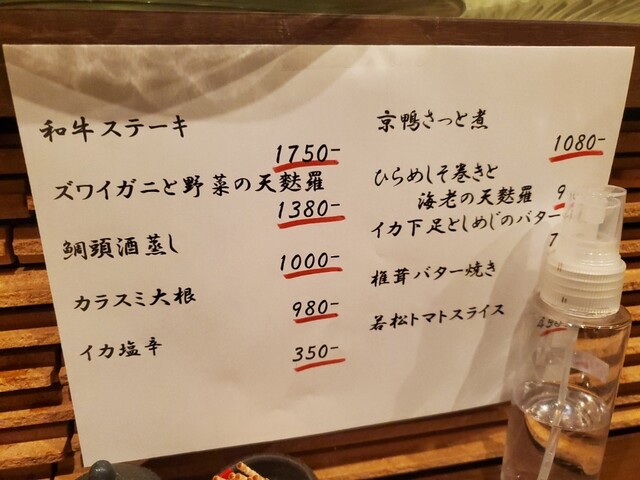 和牛ステーキ
1750-
ズワイガニと野菜の天麩羅
1380-
鯛頭酒蒸し
1000-
カラスミ大根
980-
イカ塩辛
350-
京鴨さっと煮
1080-
ひらめしそ巻きと
海老の天麩羅
9
イカ下足としめじのバター
7
椎茸バター焼き
若松トマトスライス